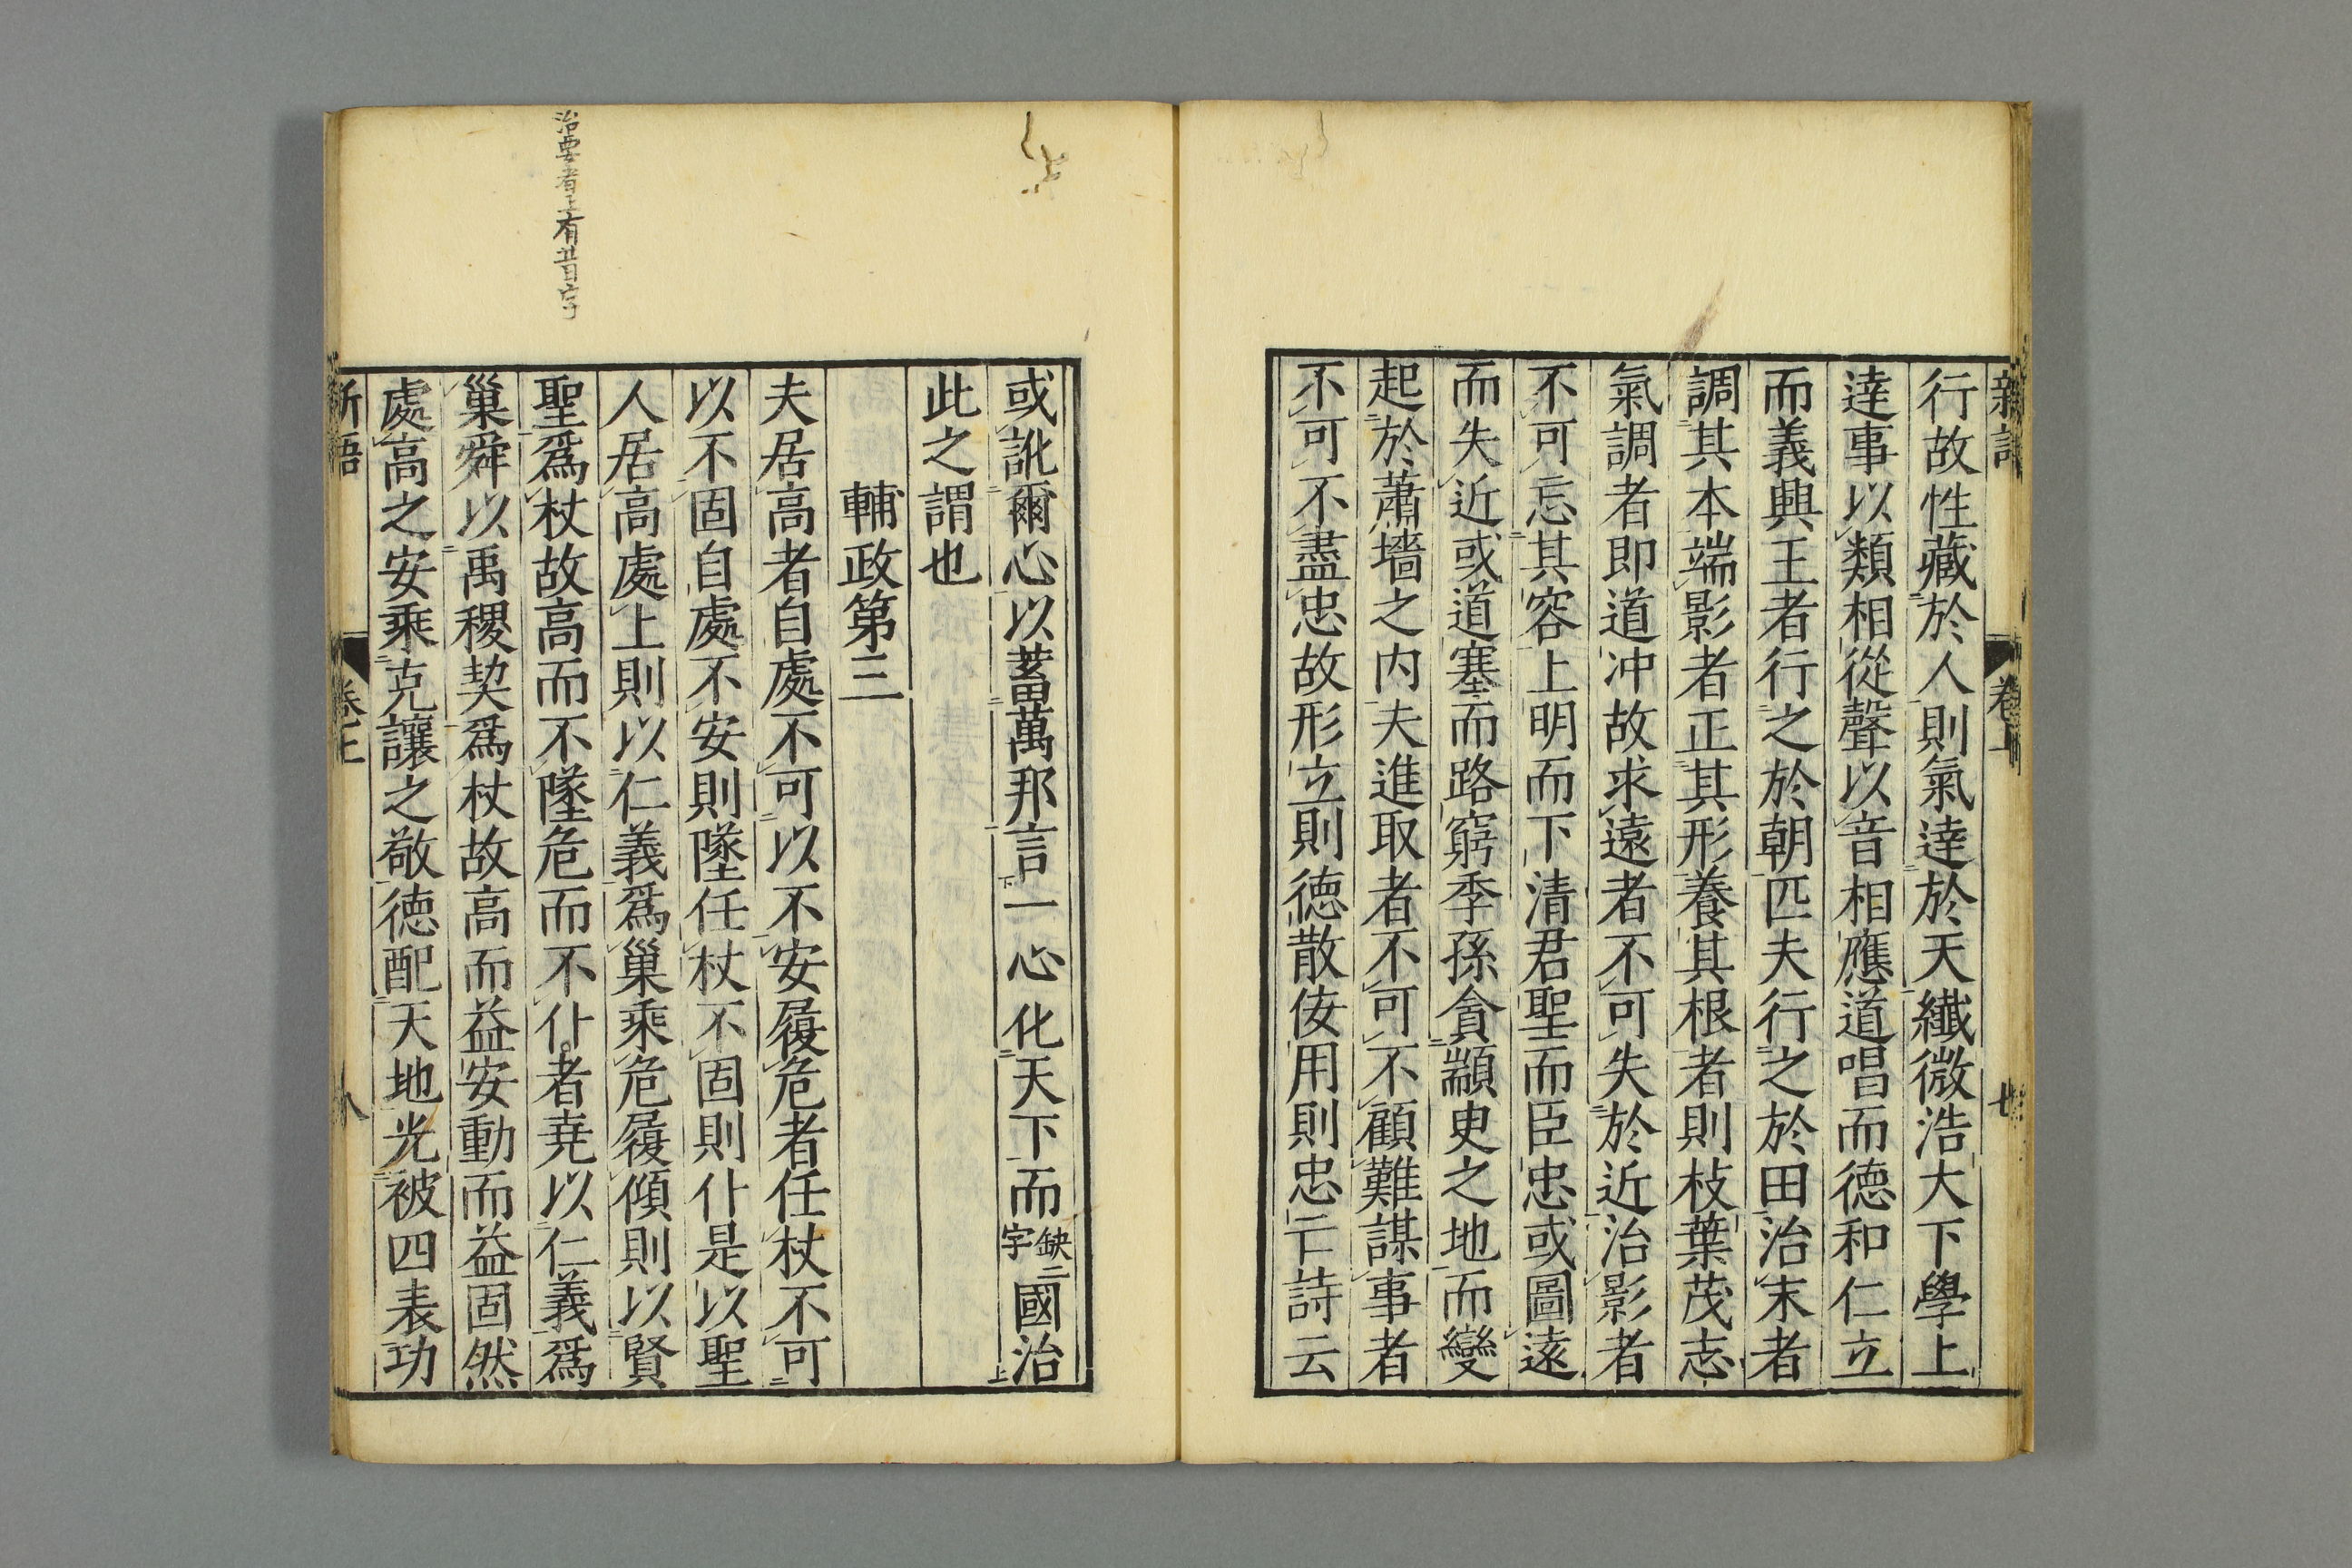 新語
卷上
七
行故性藏於人則氣達於天纖微浩大下學上
達事以類相從聲以音相應道唱而德和仁立
而義興王者行之於朝匹夫行之於田治末者
調其本端影者正其形養其根者則枝葉茂志
氣調者即道冲故求遠者不可失於近治影者
不可忘其容上明而下清君聖而臣忠或圖遠
而失近或道塞而路窮季孫貪顓臾之地而變
起於蕭墻之内夫進取者不可不顧難謀事者
不可不盡忠故形立則德散佞用則忠亡詩云
或訛爾心以蓄萬邦言一心化天下而缺二字國治
此之謂也
輔政第三
夫居高者自處不可以不安履危者任杖不可
以不固自處不安則墜任杖不固則仆是以聖
人居高處上則以仁義爲巢乘危履傾則以賢
聖爲杖故高而不墜危而不仆者堯以仁義爲
巢舜以禹稷契爲杖故高而益安動而益固然
處高之安乘克讓之敬德配天地光被四表功
新語
卷上
八
治要者上有昔字